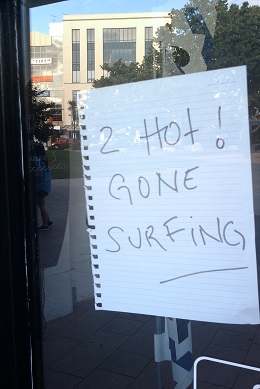 2 HOT!
GONE
SURFiNG